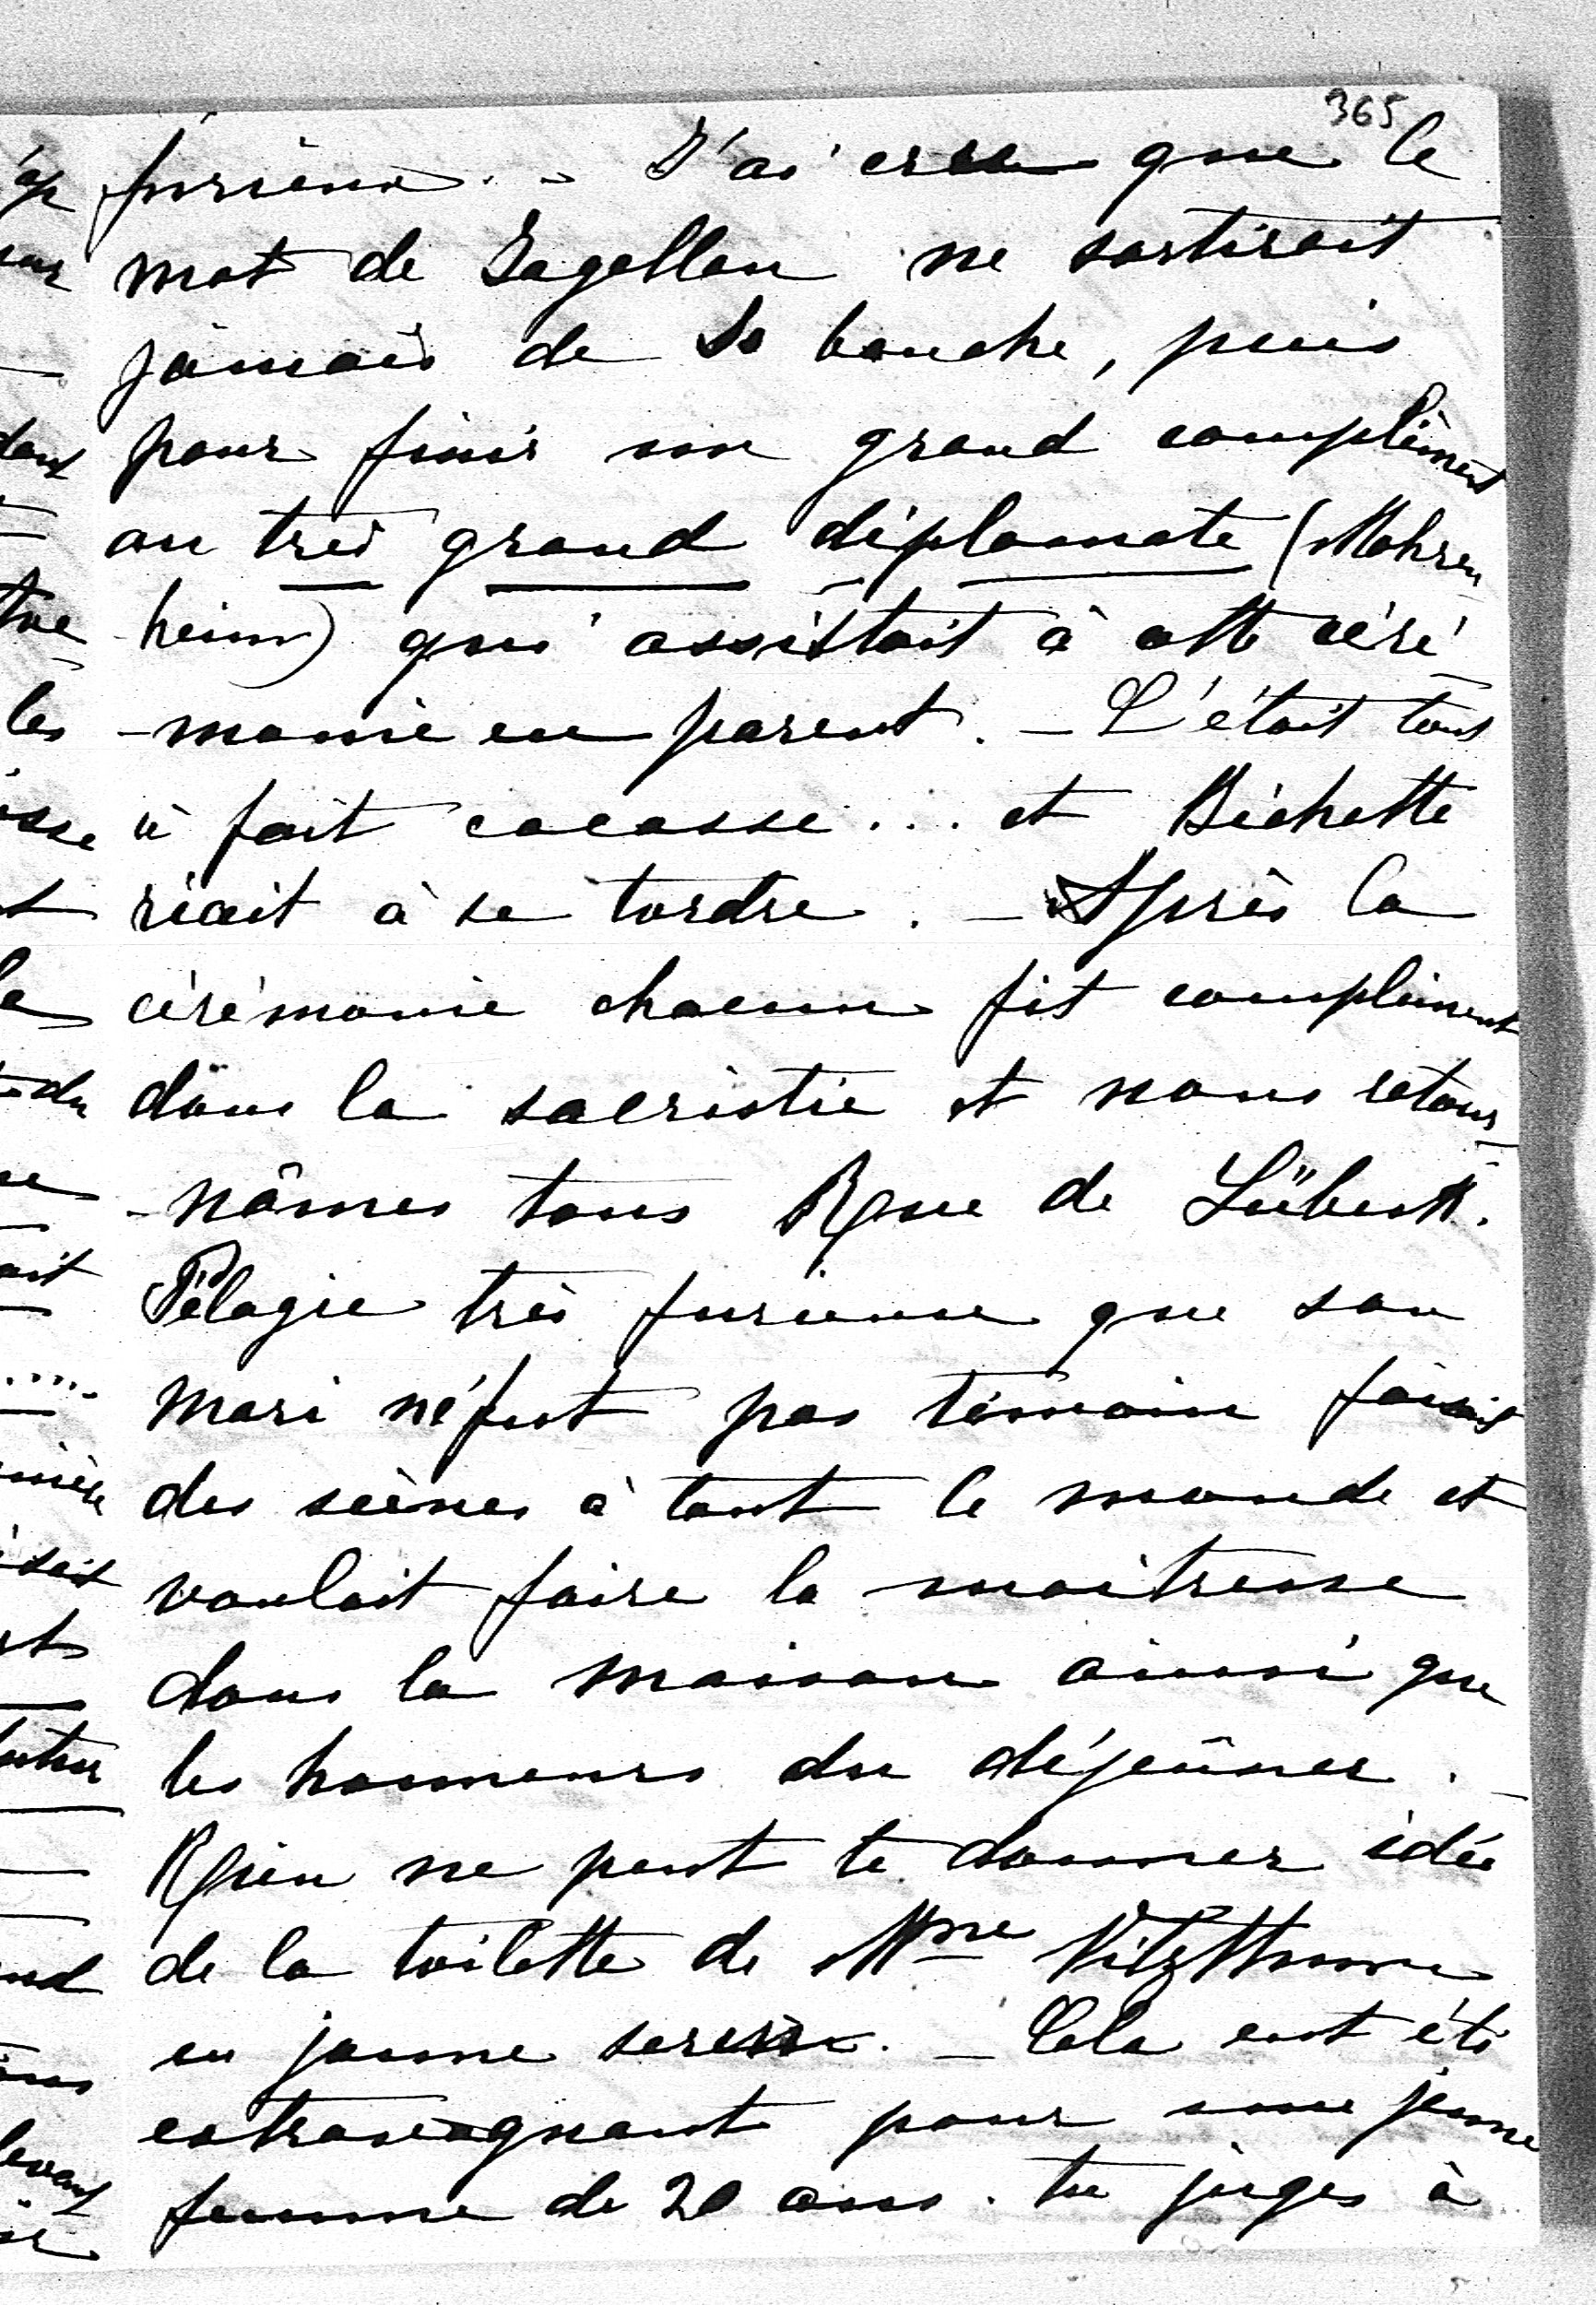 365
furieux.. - J'ai cru que le
mot de Jagellon ne sortirait
jamais de sa bouche, puis
pour finir un grand compliment
au très grand diplomate (Mohren
heim) qui assistait à cette céré
-monie en parent. - C'était tout
à fait cocasse... et Bichette
riait à se tordre. - Après la
cérémonie chacun fit compliment
dans la sacristie et nous retour
-nâmes tous Rue de Lübeck.
Pélagie très furieuse que son
mari ne fut pas témoin faisait
des scènes à tout le monde et
voulait faire la maitresse
dans la maison ainsi que
les honneurs du déjeûner. -
Rien ne peut te donner idée
de la toilette de Mme Vitzthum
en jaune serin. - Cela eut été
extravagant pour une jeune
femme de 20 ans. tu juges à